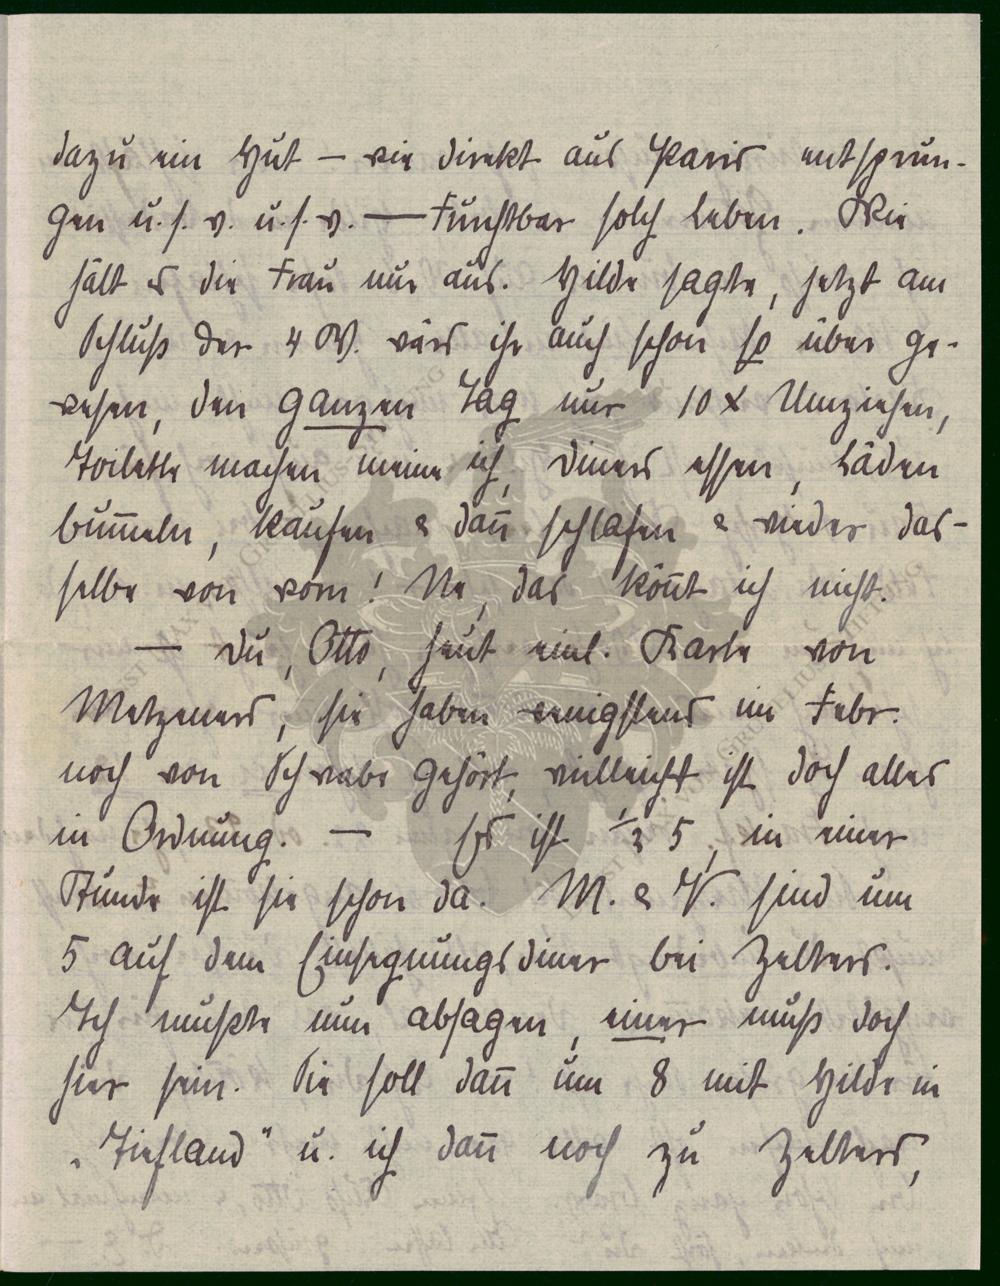 dazu ein Hut – wie direkt aus Paris entsprun-
gen u.s.w. u.s.w. — Furchtbar solch Leben. Wie
hält es die Frau nur aus. Hilde sagte, jetzt am
Schluß der 4 W. wärs ihr auch schon so über ge-
wesen, den ganzen Tag nur 10 x Umziehen,
Toilette machen meine ich, Diners essen, Läden
bum̄eln, kaufen & dan̄ schlafen & wieder das-
selbe von vorn! Ne, das kön̄t ich nicht.
— Du, Otto, heut einl. Karte von
Metzeners, sie haben wenigstens im Febr.
noch von Schwabe gehört, vielleicht ist doch alles
in Ordnung. — Es ist ½ 5, in einer
Stunde ist sie schon da. M. & V. sind um
5 auf dem Einsegnungsdiner bei Zelters.
Ich mußte nun absagen, einer muß doch
hier sein. Sie soll dan̄ um 8 mit Hilde in
„Tiefland" u. ich dan̄ noch zu Zelters,